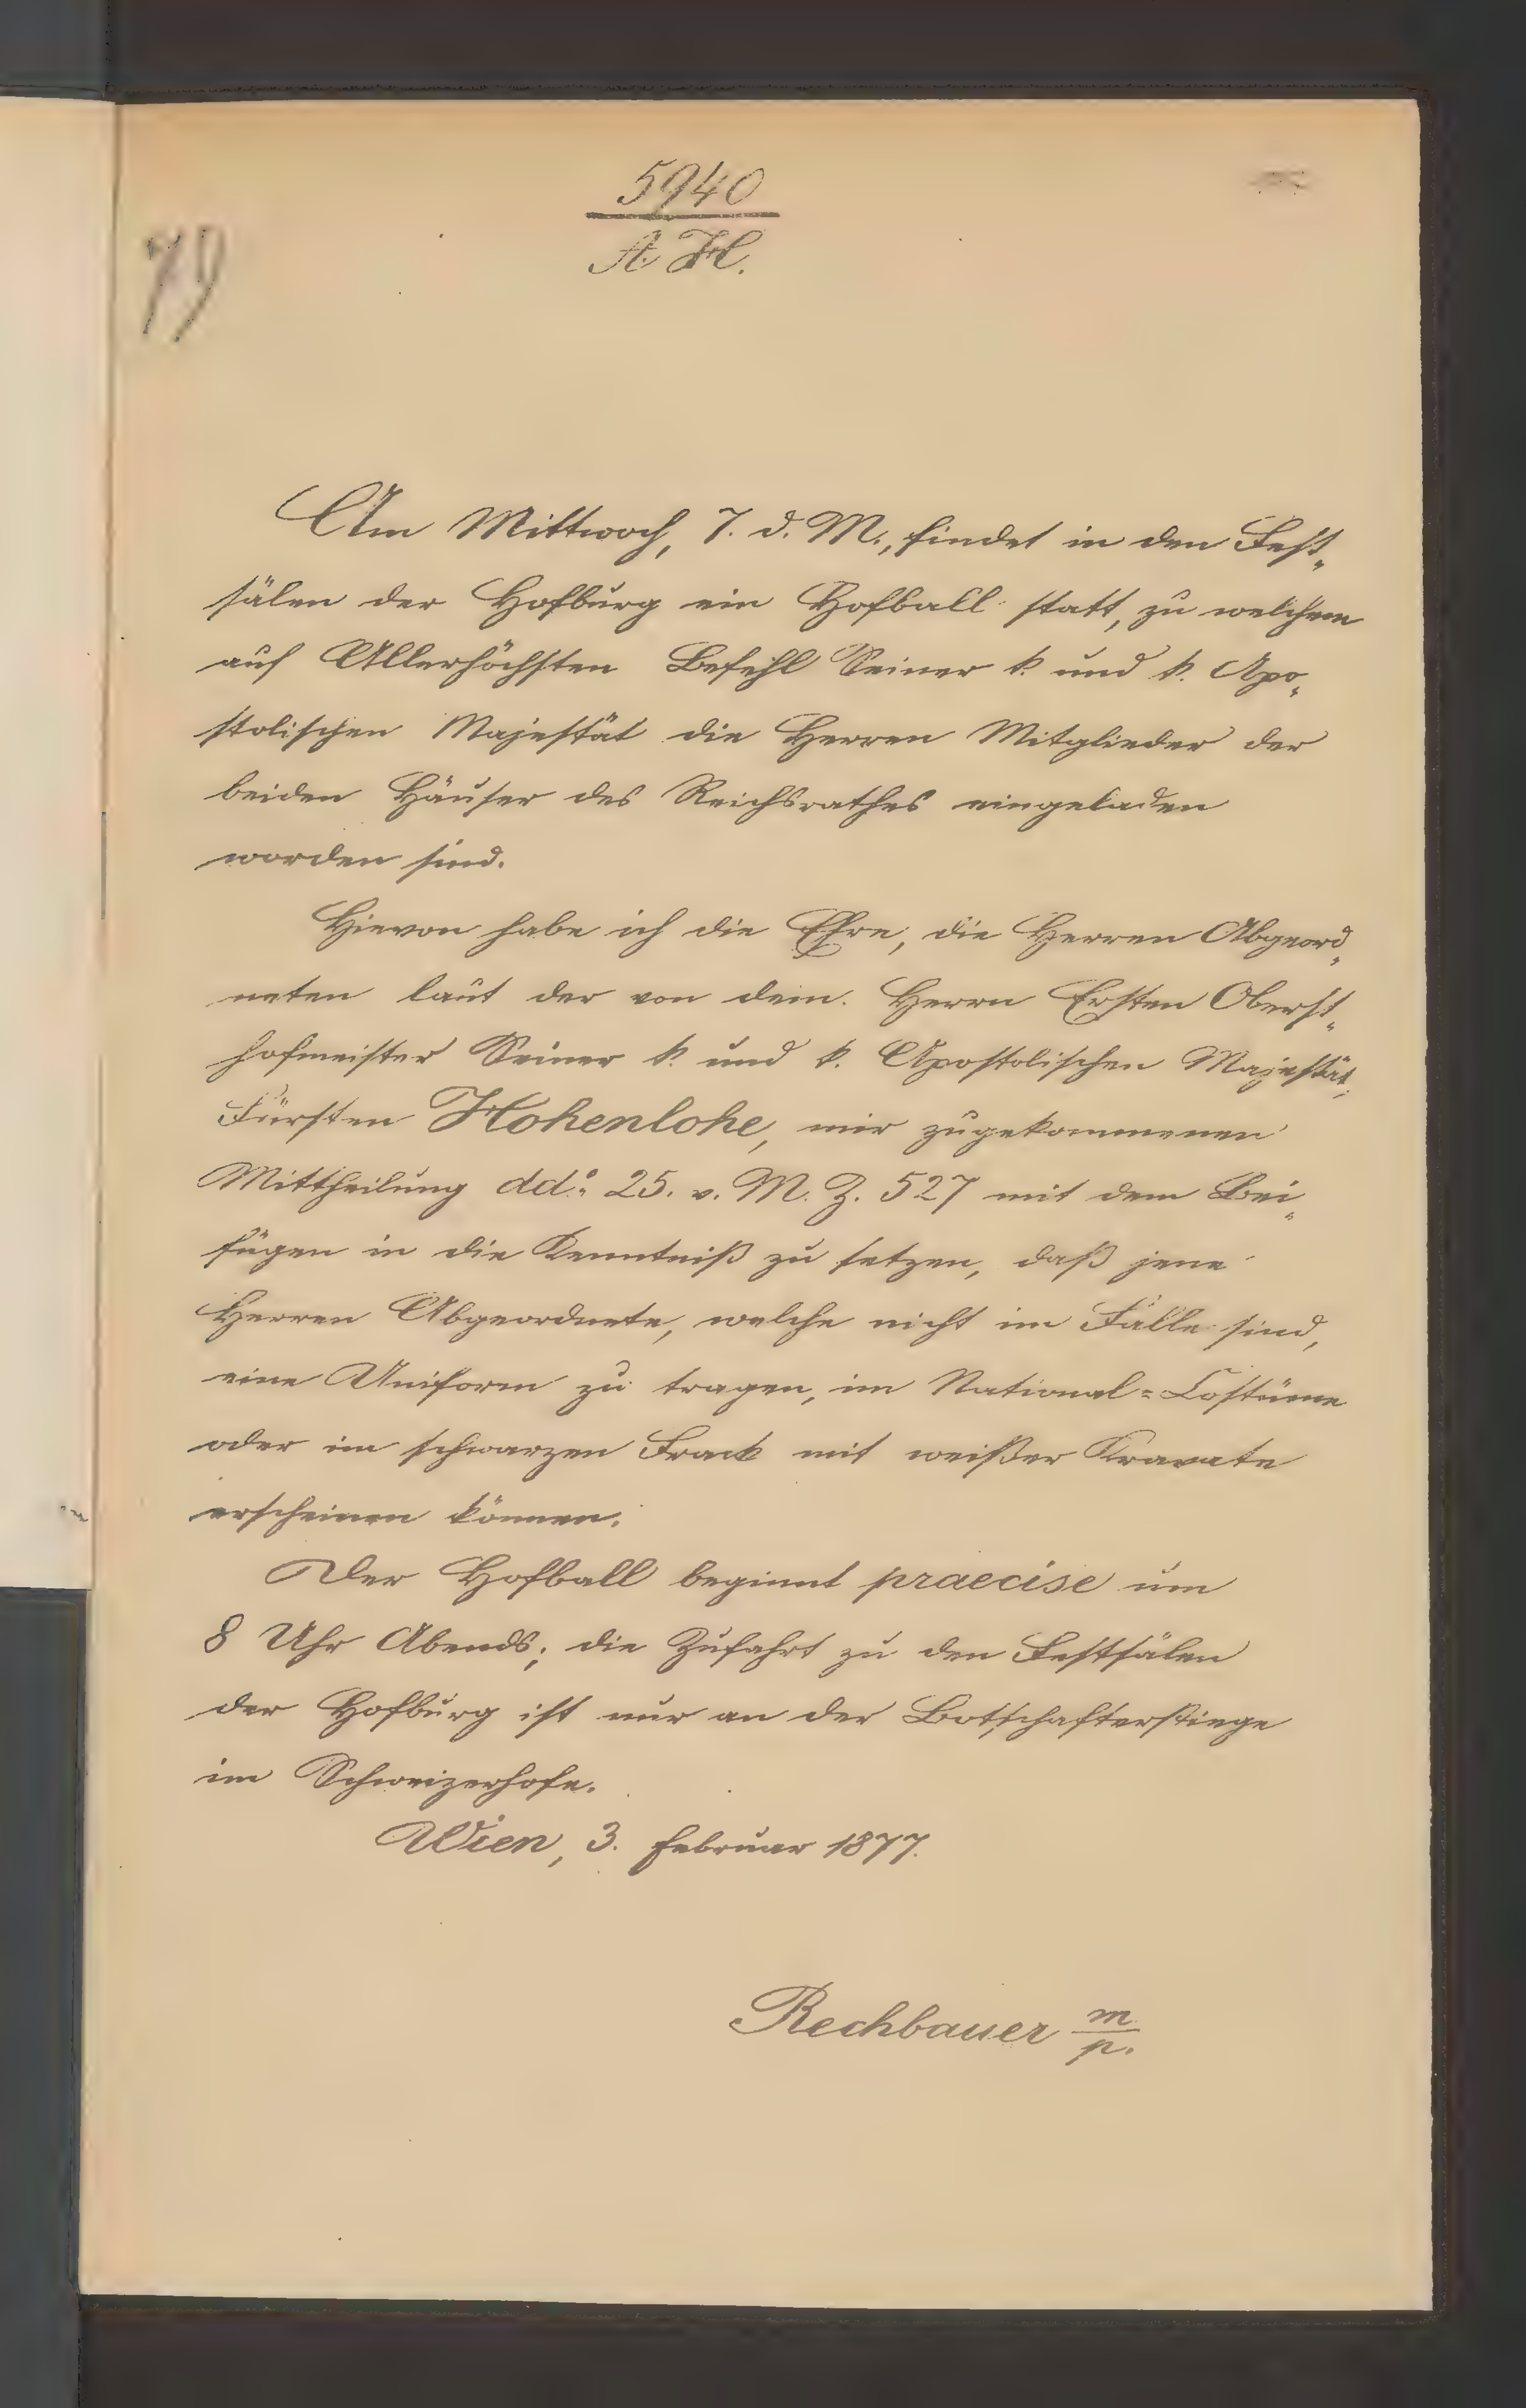 5940
A. H.
79
Am Mittwoch, 7. d. M., findet in den Fest„
sälen der Hofburg ein Hofball statt, zu welchem
auf Allerhöchsten Befehl Seiner k. und k. Apo„
stolischen Majestät die Herren Mitglieder der
beiden Häuser des Reichsrathes eingeladen
worden sind.
Hievon habe ich die Ehre, die Herren Abgeord„
neten laut der von dem Herrn Ersten Oberst„
hofmeister Seiner k. und k. Apostolischen Majestät,
Fürsten Hohenlohe, mir zugekommenen
Mittheilung ddo. 25. v. M. Z. 527 mit dem Bei„
fügen in die Kenntniß zu setzen, daß jene
Herren Abgeordnete, welche nicht im Falle sind,
eine Uniform zu tragen, im National=Costüme
oder im schwarzen Frack mit weißer Kravate
erscheinen können.
Der Hofball beginnt praecise um
8 Uhr Abends; die Zufahrt zu den Festsälen
der Hofburg ist nur an der Botschafterstiege
im Schweizerhofe.
Wien, 3. Februar 1877.
Rechbauer m/p.